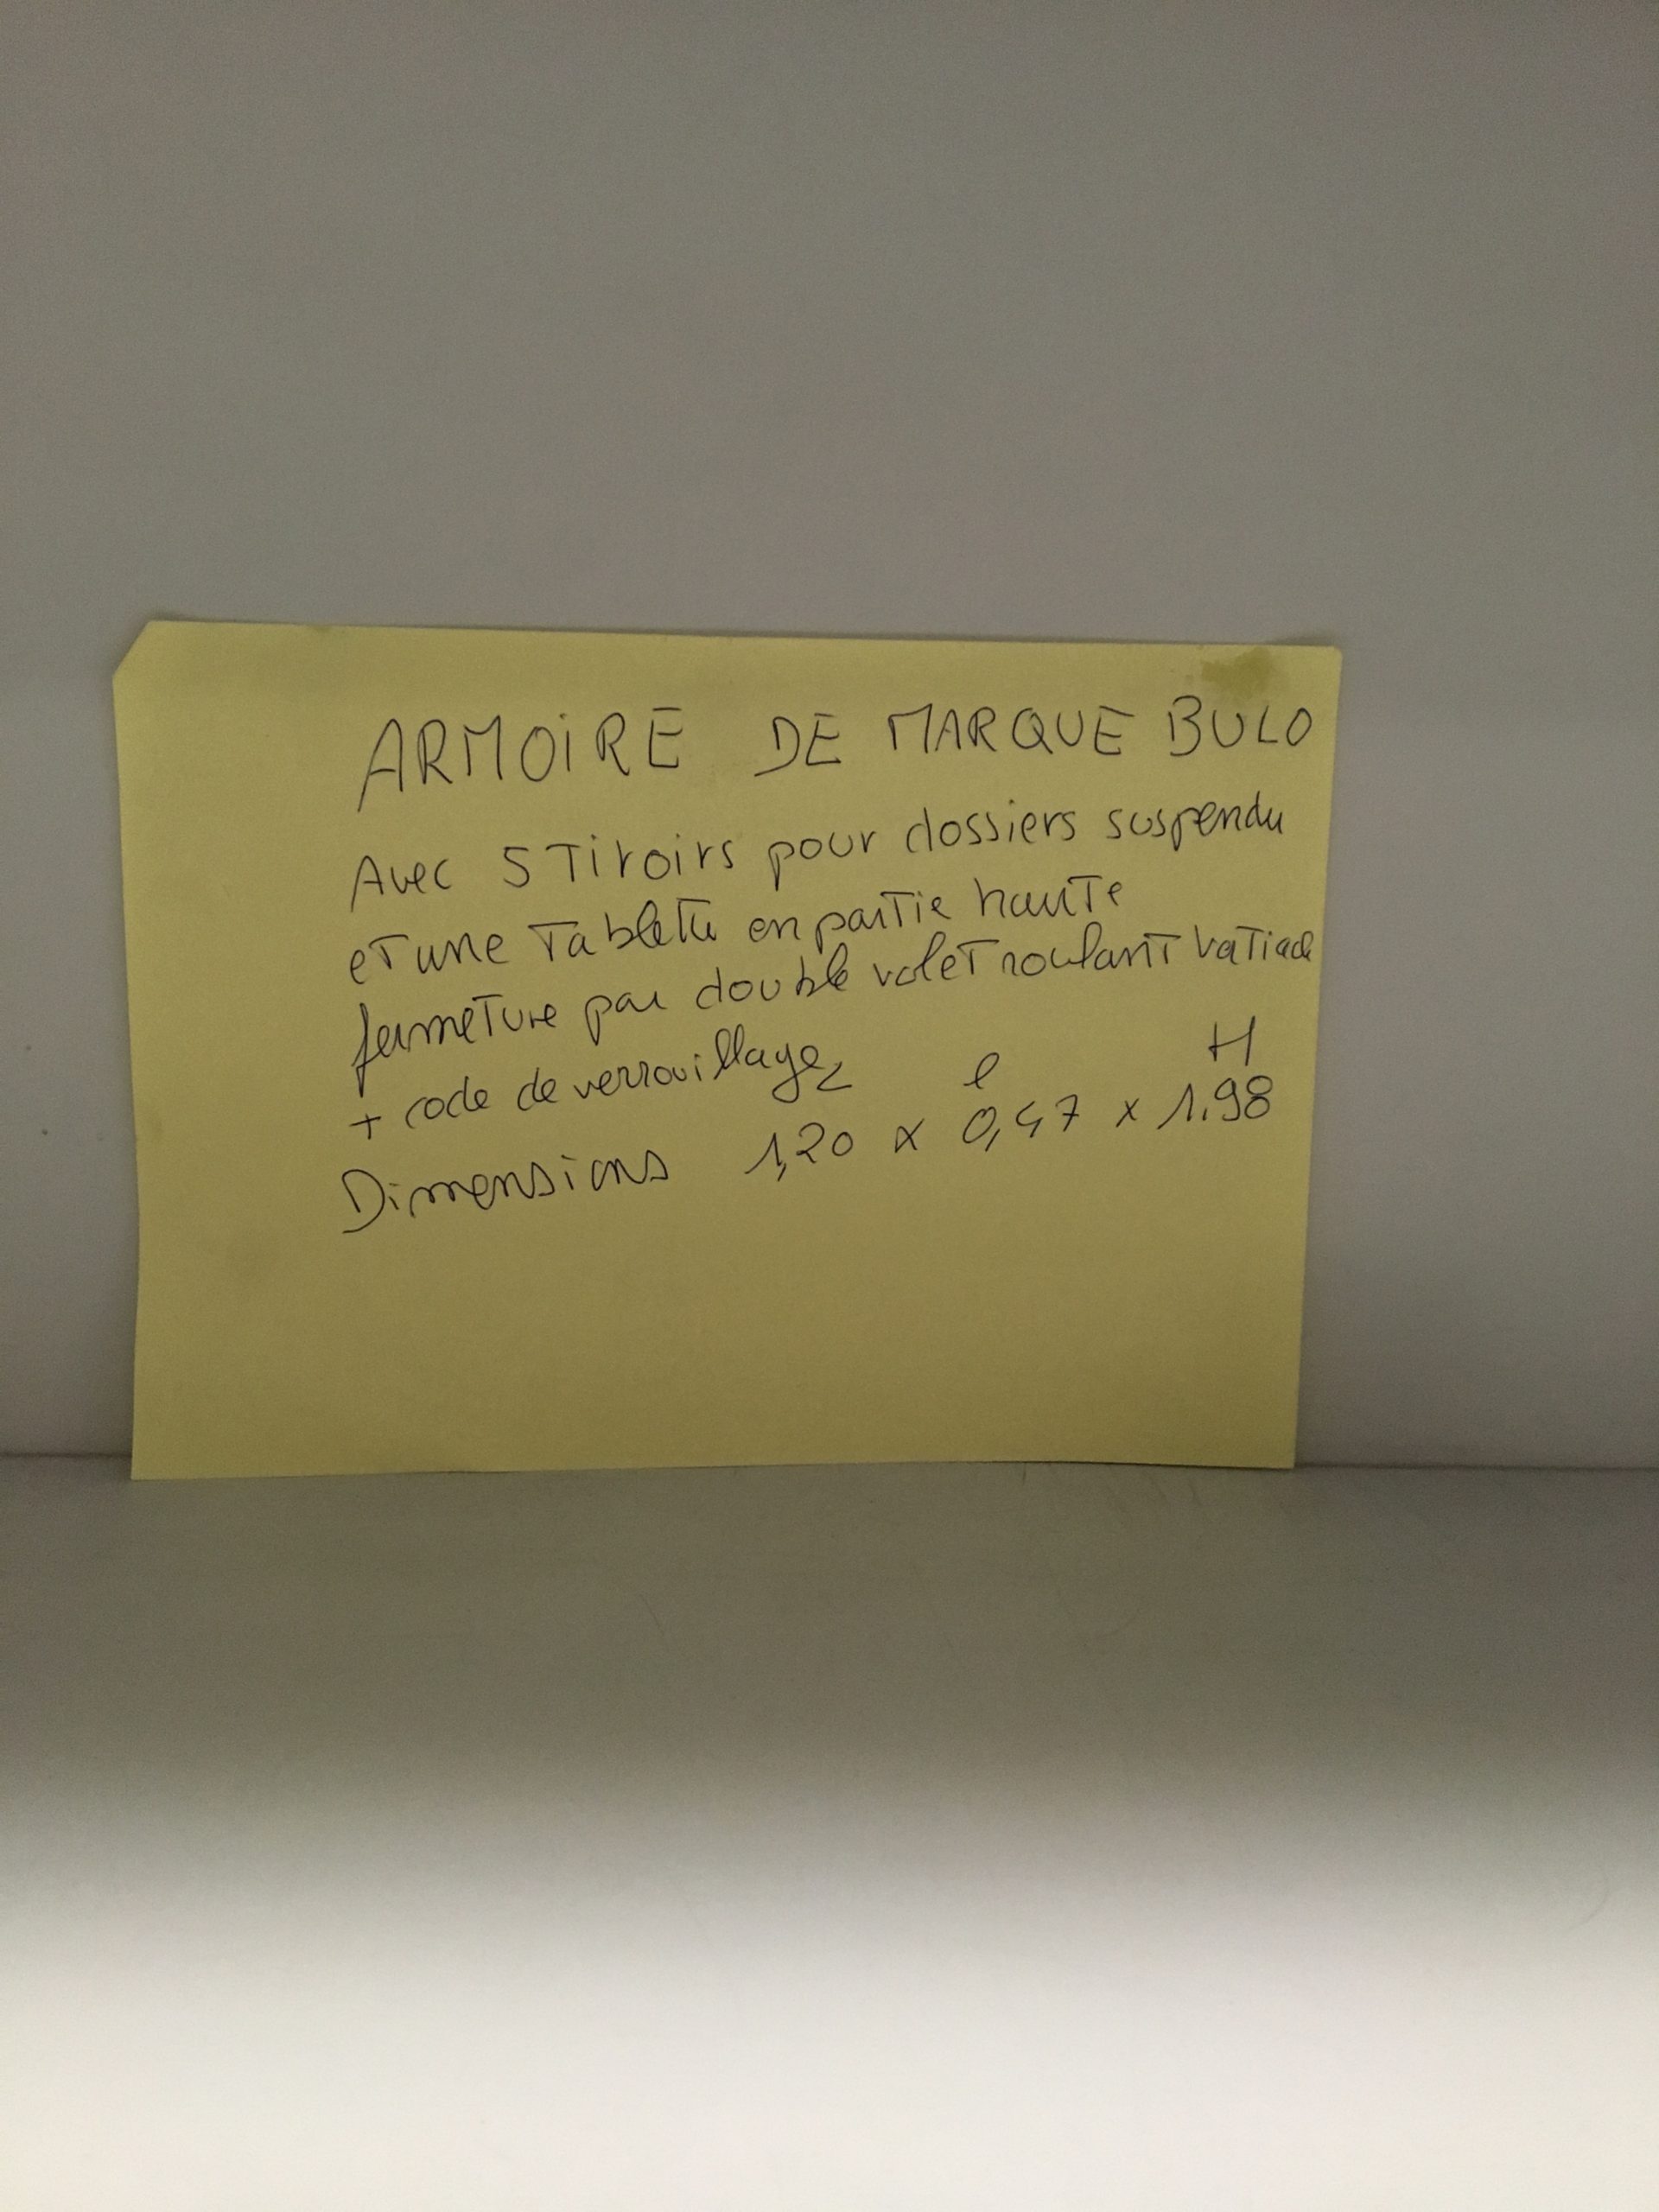 ARMOiRE DE MARQUE BULO
Avec 5 Tiroirs pour dossiers suspendu
et une Tablette en partie haute
fermeture par double volet roulant
+ code de verrouillage
L l H
Dimensions 1,20 x 0,47 x 1.98